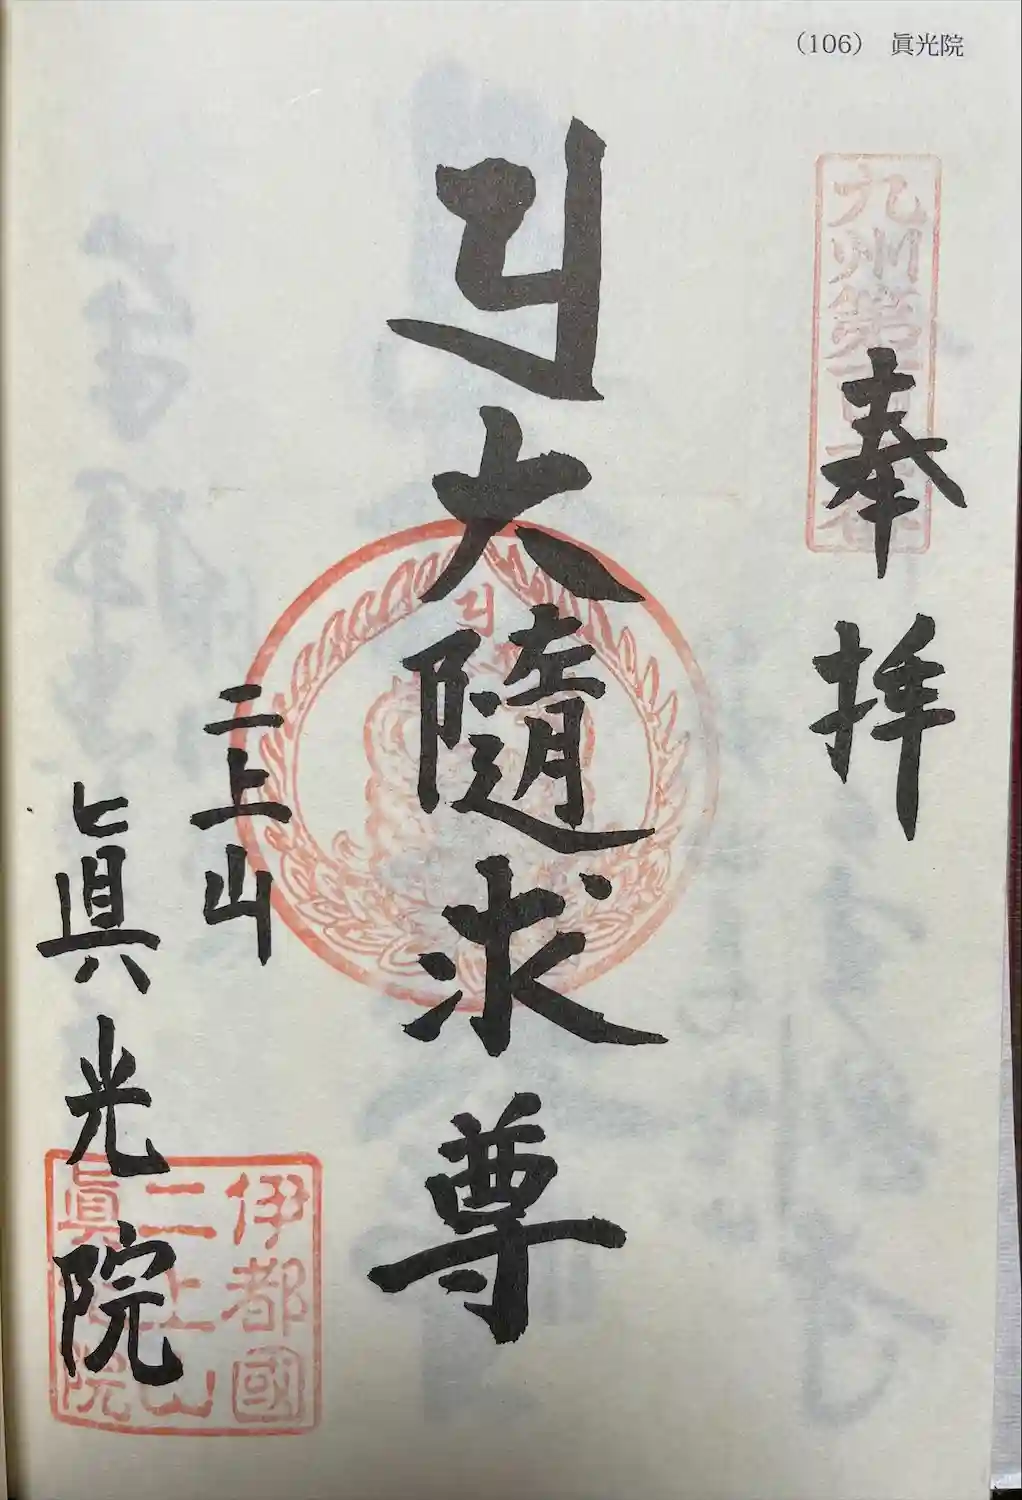 （106）　眞光院
奉拝
大隨求尊
二上山
眞光院
伊都國
二上山
眞光院